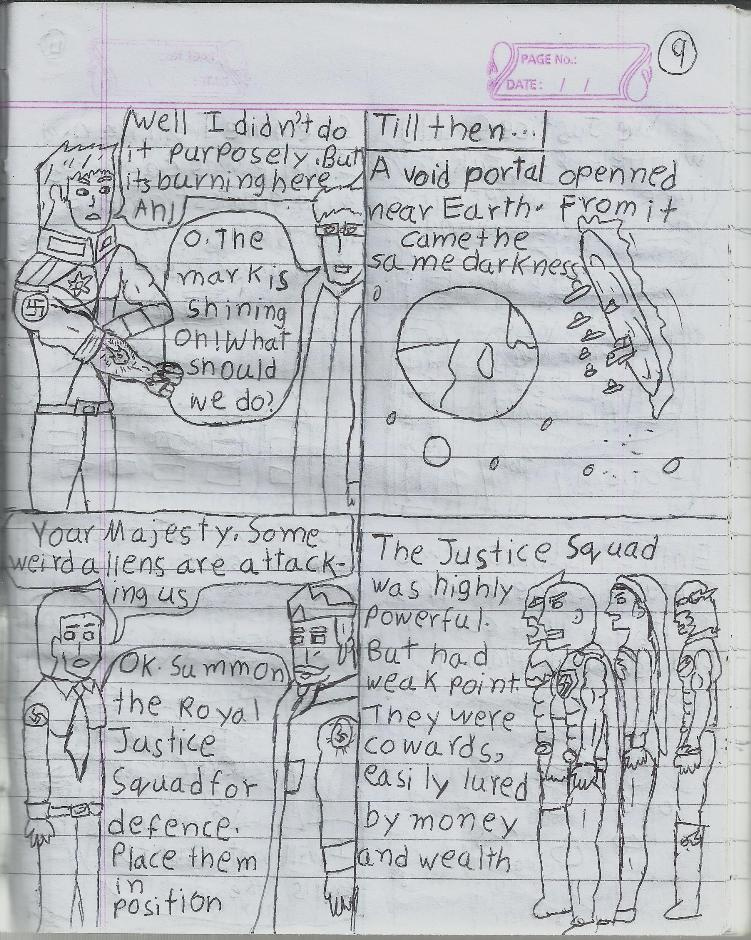 PAGE No.:
DATE: / /
9
Well I didn't do
it purposely. But
its burning here
Ah!
O. The
mark is
shining
Oh! What
should
we do?
Till then...
A void portal openned
near Earth. From it
came the
same darkness
Your Majesty. Some
weird aliens are attack-
ing us
OK. Summon
the Royal
Justice
Squad for
defence.
Place them
in
position
The Justice Squad
was highly
powerful.
But had
weak point.
They were
cowards,
easily lured
by money
and wealth